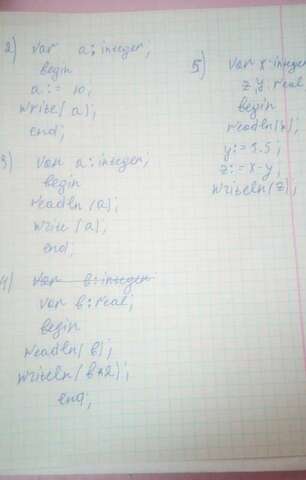 2) var a: integer;
begin
a := 10;
write(a);
end;
3) var a: integer;
begin
readln(a);
write(a);
end;
4) var b: integer
var b: real;
begin
readln(b);
writeln(b*2);
end;
5) var x: integer
z, y: real
begin
readln(x);
y := 5.5;
z := x-y;
writeln(z);